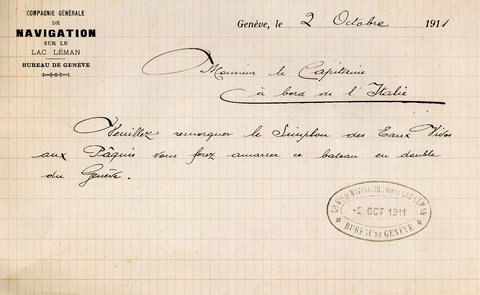 COMPAGNIE GÉNÉRALE
DE
NAVIGATION
SUR LE
LAC LÉMAN
BUREAU DE GENÈVE
Genève, le 2 Octobre 1911
Monsieur le Capitaine
à bord de l'Italie
Veuillez remorquer le Simplon des Eaux Vives
aux Pâquis vous ferez amarrer ce bateau en double
du Genève.
NAVIGATION
-2 OCT 1911
BUREAU DE GENÈVE